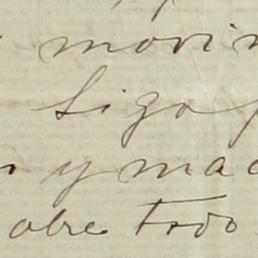 movin
Sigo
y mac
obre todo